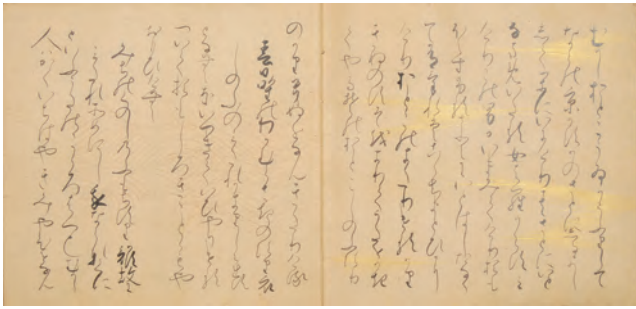 むかしをとこうゐかうふりして
ならの京かすかのさとにしるよし
してかりにいにけりそのさとにいと
なまめいたる女はらからすみ
けりかのおとこかいまみてけりおも
ほえすふるさとにいとはしたなく
てありけれは心ちまとひに
けりおとこのきたりける
かりきぬのすそをきりてうたをかき
てやるそのおとこしのふすり
のかりきぬをなんきたりける
春日野のわかむらさきのすり衣
しのふのみたれかきりしられす
となんをいつきていひやりける
ついておもしろきことゝもや
おもひけん
みちのくのしのふもちすり誰故に
みたれそめにし我ならなくに
といふうたのこゝろはへなりむかし
人はかくいちはやきみやひをなん